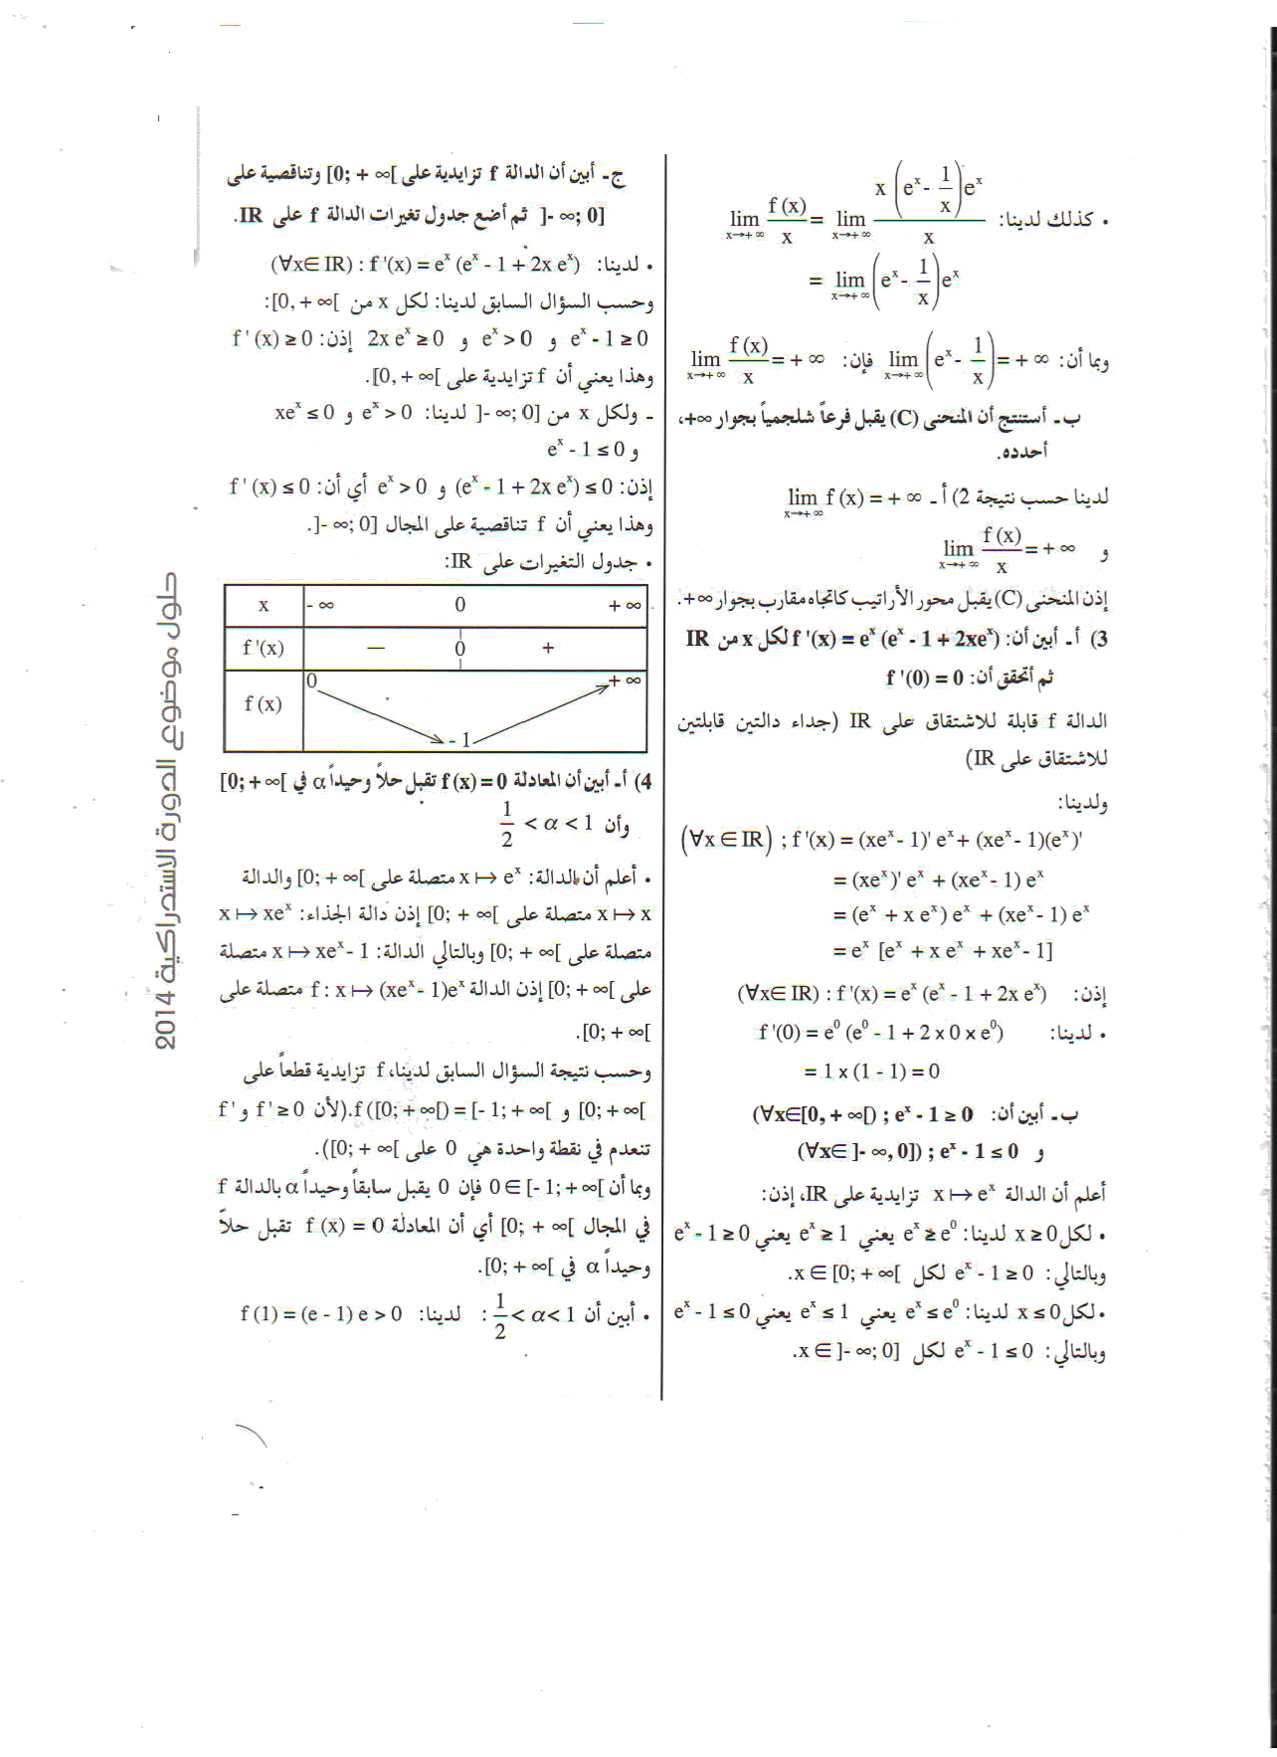 • كذلك لدينا: lim x→+∞ f(x)/x = lim x→+∞ x(eˣ - 1/x)eˣ / x
= lim x→+∞ (eˣ - 1/x)eˣ
وبما أن: lim x→+∞ (eˣ - 1/x) = +∞ فإن: lim x→+∞ f(x)/x = +∞
ب- أستنتج أن المنحنى (C) يقبل فرعاً شلجمياً بجوار +∞،
أحدده.
لدينا حسب نتيجة 2) أ- lim x→+∞ f(x) = +∞
و lim x→+∞ f(x)/x = +∞
إذن المنحنى (C) يقبل محور الأراتيب كاتجاه مقارب بجوار +∞.
3) أ- أبين أن: f'(x) = eˣ (eˣ - 1 + 2xeˣ) لكل x من IR
ثم أتحقق أن: f'(0) = 0
الدالة f قابلة للاشتقاق على IR (جداء دالتين قابلتين
للاشتقاق على IR)
ولدينا:
(∀x ∈ IR) ; f'(x) = (xeˣ - 1)' eˣ + (xeˣ - 1)(eˣ)'
= (xeˣ)' eˣ + (xeˣ - 1) eˣ
= (eˣ + x eˣ) eˣ + (xeˣ - 1) eˣ
= eˣ [eˣ + x eˣ + xeˣ - 1]
إذن: (∀x∈ IR) : f'(x) = eˣ (eˣ - 1 + 2x eˣ)
• لدينا: f'(0) = e⁰ (e⁰ - 1 + 2 x 0 x e⁰)
= 1 x (1 - 1) = 0
ب- أبين أن: (∀x∈[0, + ∞[) ; eˣ - 1 ≥ 0
و (∀x∈ ]- ∞, 0]) ; eˣ - 1 ≤ 0
أعلم أن الدالة x ↦ eˣ تزايدية على IR، إذن:
• لكل x ≥ 0 لدينا: eˣ ≥ e⁰ يعني eˣ ≥ 1 يعني eˣ - 1 ≥ 0
وبالتالي: eˣ - 1 ≥ 0 لكل x ∈ [0; + ∞[.
• لكل x ≤ 0 لدينا: eˣ ≤ e⁰ يعني eˣ ≤ 1 يعني eˣ - 1 ≤ 0
وبالتالي: eˣ - 1 ≤ 0 لكل x ∈ ]- ∞; 0].
ج- أبين أن الدالة f تزايدية على [0; + ∞[ وتناقصية على
]- ∞; 0] ثم أضع جدول تغيرات الدالة f على IR.
• لدينا: (∀x∈ IR) : f'(x) = eˣ (eˣ - 1 + 2x eˣ)
وحسب السؤال السابق لدينا: لكل x من [0, + ∞[:
eˣ - 1 ≥ 0 و eˣ > 0 و 2x eˣ ≥ 0 إذن: f'(x) ≥ 0
وهذا يعني أن f تزايدية على [0, + ∞[.
- ولكل x من ]- ∞; 0] لدينا: eˣ > 0 و xeˣ ≤ 0
و eˣ - 1 ≤ 0
إذن: (eˣ - 1 + 2x eˣ) ≤ 0 و eˣ > 0 أي أن: f'(x) ≤ 0
وهذا يعني أن f تناقصية على المجال ]- ∞; 0].
• جدول التغيرات على IR:
x - ∞ 0 + ∞
f'(x) − 0 +
f(x) 0 - 1 + ∞
4) أ- أبين أن المعادلة f(x) = 0 تقبل حلاً وحيداً α في [0; + ∞[
وأن 1/2 < α < 1
• أعلم أن الدالة: x ↦ eˣ متصلة على [0; + ∞[ والدالة
x ↦ x متصلة على [0; + ∞[ إذن دالة الجذاء: x ↦ xeˣ
متصلة على [0; + ∞[ وبالتالي الدالة: x ↦ xeˣ - 1 متصلة
على [0; + ∞[ إذن الدالة f : x ↦ (xeˣ - 1)eˣ متصلة على
[0; + ∞[.
وحسب نتيجة السؤال السابق لدينا، f تزايدية قطعاً على
[0; + ∞[ و f([0; + ∞[) = [- 1; + ∞[.(لأن f' ≥ 0 و f'
تنعدم في نقطة واحدة هي 0 على [0; + ∞[).
وبما أن 0 ∈ [- 1; + ∞[ فإن 0 يقبل سابقاً وحيداً α بالدالة f
في المجال [0; + ∞[ أي أن المعادلة f (x) = 0 تقبل حلاً
وحيداً α في [0; + ∞[.
• أبين أن 1/2 < α < 1 : لدينا: f (1) = (e - 1) e > 0
حلول موضوع الدورة الاستدراكية 2014